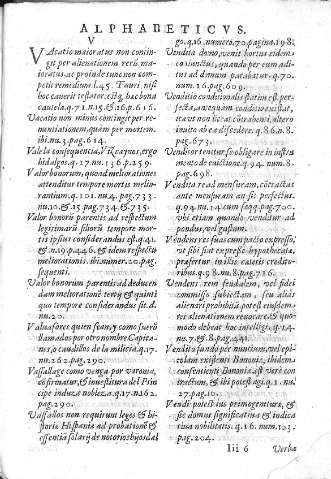 ALPHABETICVS.
V
VAcatio maioratus non contin-
git per alienationem rerũ ma-
ioratus, ac proinde tunc non com-
petit remedium l.45. Tauri, nisi
hoc cauerit testator, est q̃ hæc bona
cautela q.71.n.15.& 16.p.616.
Vacatio non minus contingit per re-
nuntiationem, quàm per mortem.
ibi.nu.3.pag.614.
Vale la consequencia, Vizcaynos, ergo
hidalgos. q.17.nu.136.p.259.
Valor bonorum, quoad meliorationes
attenditur tempore mortis melio-
rantium. q.101.nu.4. pag.733.
nu.10.& 15.pag.734.& 735.
Valor bonorũ parentis ad respectum
legitimarũ filiorũ tempore mor-
tis ipsius considerandus est. q.41.
& n.19.p.446.& idem respectu
meliorationis. ibi.numer.20.pag.
sequenti.
Valor bonorum parentis ad deducen
dam meliorationẽ tertij & quinti
quo tempore considerandus sit.d.
nu.20.
Valuasores quien son, y como fuerõ
llamados por otro nombre Capita-
nes, o caudillos de la milicia. q.17.
nu.262.pag.290.
Vassallage como venga por varonia,
confirmatur, & inuestitura del Prin
cipe induza nobleza. q.17.n.262.
pag.290.
Vassallos non requirum leges & hi-
storie Hispaniæ ad probationẽ &
essentiã solarij de notorios hijosdal
go. q.16.numero.70.pagina.198.
Vendita domo, venit hortus eidem
coniunctus, quando per eum adi-
tus ad domum patebat. q.70.
num.16.pag.609.
Venditio conditionalis statim est per-
fecta, ac equam conditio existat,
ita vt non liceat cõtrahenti, altero
inuito ab ea discedere. q.86.n.8.
pag.673.
Venditor tenetur se obligare in instru
mento de euictione. q.94. num.8.
pag.698.
Vendita re ad mensuram, cõtractus
ante mensuram an sit perfectus.
q.94.nu.14.cum seqq.pag.700.
vbi etiam quando vendatur ad
pondus, vel gustum.
Vendens res suas cum pacto expresso,
vt sibi sint expressè hypothecatæ,
prefertur in illis cæteris credito-
ribus. q.98.nu.8.pag.716.
Vendens rem feudalem, vel fidei
commisso subiectam, seu aliàs
alienari prohibitã, potest eiusdem
rei alienationem reuocare, & quo-
modo debeat hoc intelligi. q.14.
nu.7.& 8.pag.491.
Vendito fundo per nuntium, vel epi-
stolam existenti Bononiæ, ibidem
consentienti Bononiæ est vero con
tractum, & ibi potest agi. q.1.nu.
27.pag.10.
Vendi potest ius primogenituræ, &
sic domus significatiua & indica
tiua nobilitatis. q.16. num.103.
pag.204.
Iii 6 Verba